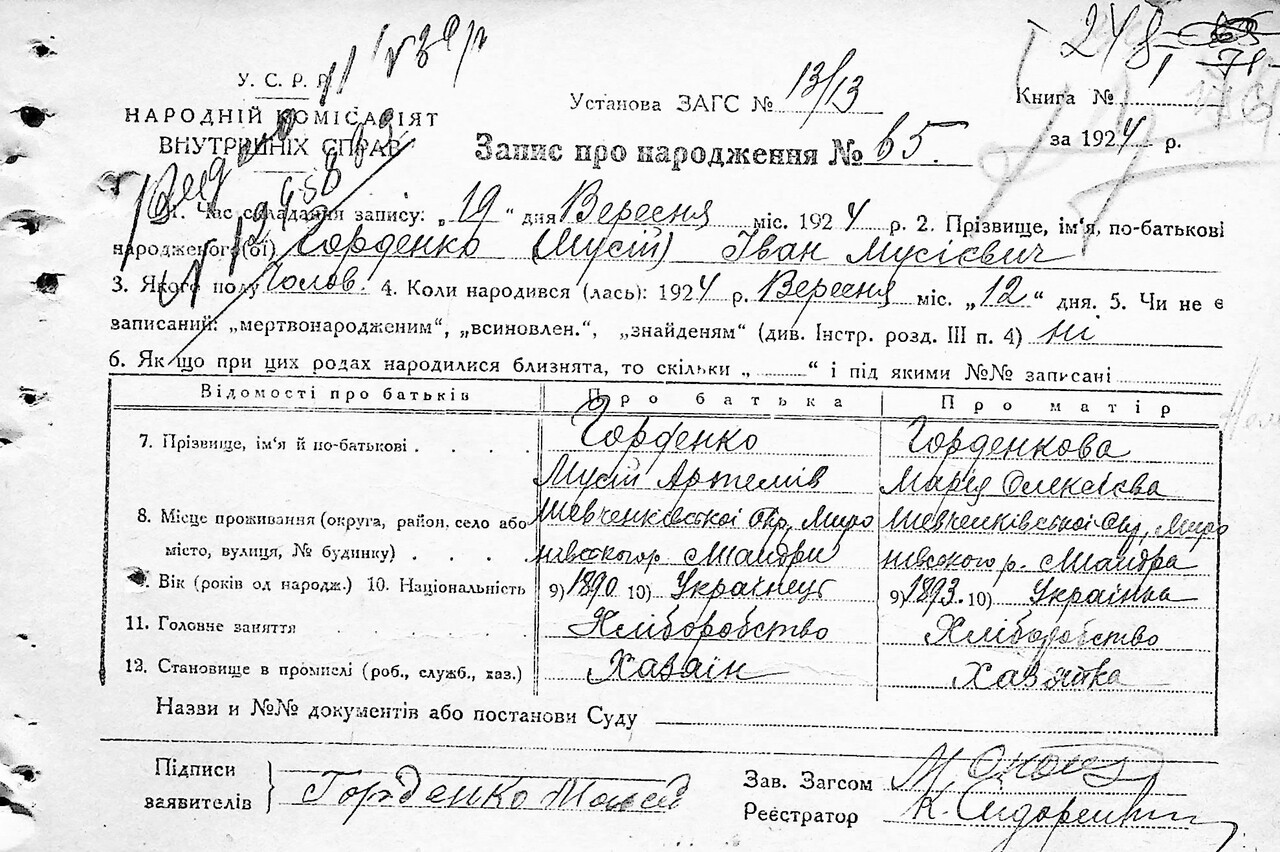 248
71
У. С. Р. Р.
НАРОДНІЙ КОМІСАРІЯТ
ВНУТРІШНІХ СПРАВ
Установа ЗАГС № 13/13
Книга №
за 1924 р.
Запис про народження № 65.
1. Час складання запису: „19“ дня Вересня міс. 1924 р. 2. Прізвище, ім‘я, по-батькові
народженого(ої) Горденко (Мусій) Іван Мусієвич
3. Якого полу Чолов. 4. Коли народився (лась): 1924 р. Вересня міс. „12“ дня. 5. Чи не є
записаний: „мертвонародженим“, „всиновлен.“, „знайденям“ (див. Інстр. розд. III п. 4) ні
6. Як що при цих родах народилися близнята, то скільки „ “ і під якими №№ записані
Відомості про батьків Про батька Про матір
7. Прізвище, ім‘я й по-батькові Горденко Горденкова
Мусій Артемів Марія Олексієва
8. Місце проживання (округа, район, село або Шевченківської Окр, Миро Шевченківської Окр, Миро
місто, вулиця, № будинку) нівського р.
9. Вік (років од народж.) 10. Національність 9) 1890 10) Українець 9) 1893. 10) Українка
11. Головне заняття Хліборобство Хліборобство
12. Становище в промислі (роб., служб., хаз.) Хазаін Хазяйка
Назви и №№ документів або постанови Суду
Підписи
заявителів
Горденко Моисей
Зав. Загсом
Реєстратор К. Сидоренко